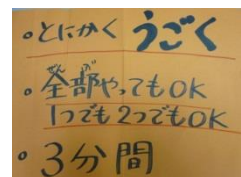 ・とにかく うごく
・全部やってもOK
1つでも2つでもOK
・3分間